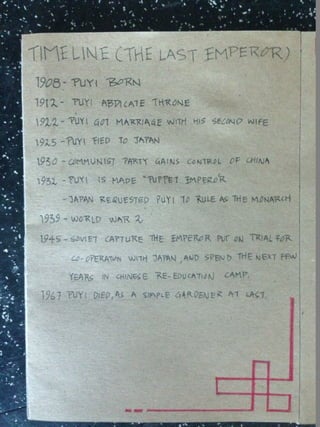 TIMELINE (THE LAST EMPEROR)
1908 - PUYI BORN
1912 - PUYI ABDICATE THRONE
1922 - PUYI GOT MARRIAGE WITH HIS SECOND WIFE
1925 - PUYI FIED TO JAPAN
1930 - COMMUNIST PARTY GAINS CONTROL OF CHINA
1932 - PUYI IS MADE "PUPPET EMPEROR
- JAPAN REQUESTED PUYI TO RULE AS THE MONARCH
1939 - WORLD WAR 2
1945 - SOVIET CAPTURE THE EMPEROR PUT ON TRIAL FOR
CO-OPERATION WITH JAPAN, AND SPEND THE NEXT FEW
YEARS IN CHINESE RE-EDUCATION CAMP.
1967 PUYI DIED, AS A SIMPLE GARDENER AT LAST.